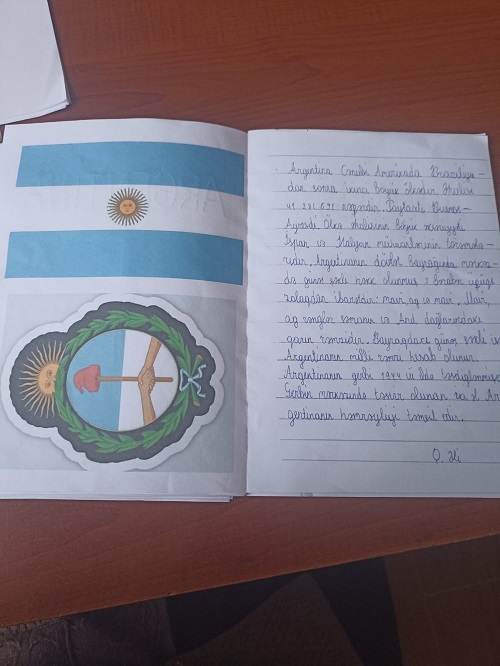 Argentina Cənubi Amerikada Braziliya-
dan sonra ikinci böyük ölkədir. Əhalisi
41 281 631 nəfərdir. Paytaxtı Buenos-
Ayresdi. Ölkə əhalisinin böyük əksəriyyəti
İspan və İtalyan mühacirlərinin törəmələ-
ridir. Argentinanın dövlət bayrağında mərkəz-
də günəş əsli həkk olunmuş 3 enəm üfüqi
zolaqdan ibarətdir: mavi, ağ və mavi. Mavi,
ağ rənglər səmanın və And dağlarındakı
qarın rəmzidir. Bayraqdakı günəş əsli isə
Argentinanın milli rəmzi hesab olunur.
Argentinanın gerbi 1944 cü ildə təsdiqlənmiş
Gerbin mərkəzində təsvir olunan iki əl Ar
gentinanın həmrəyliyi təmsil edir.
Q. Əli